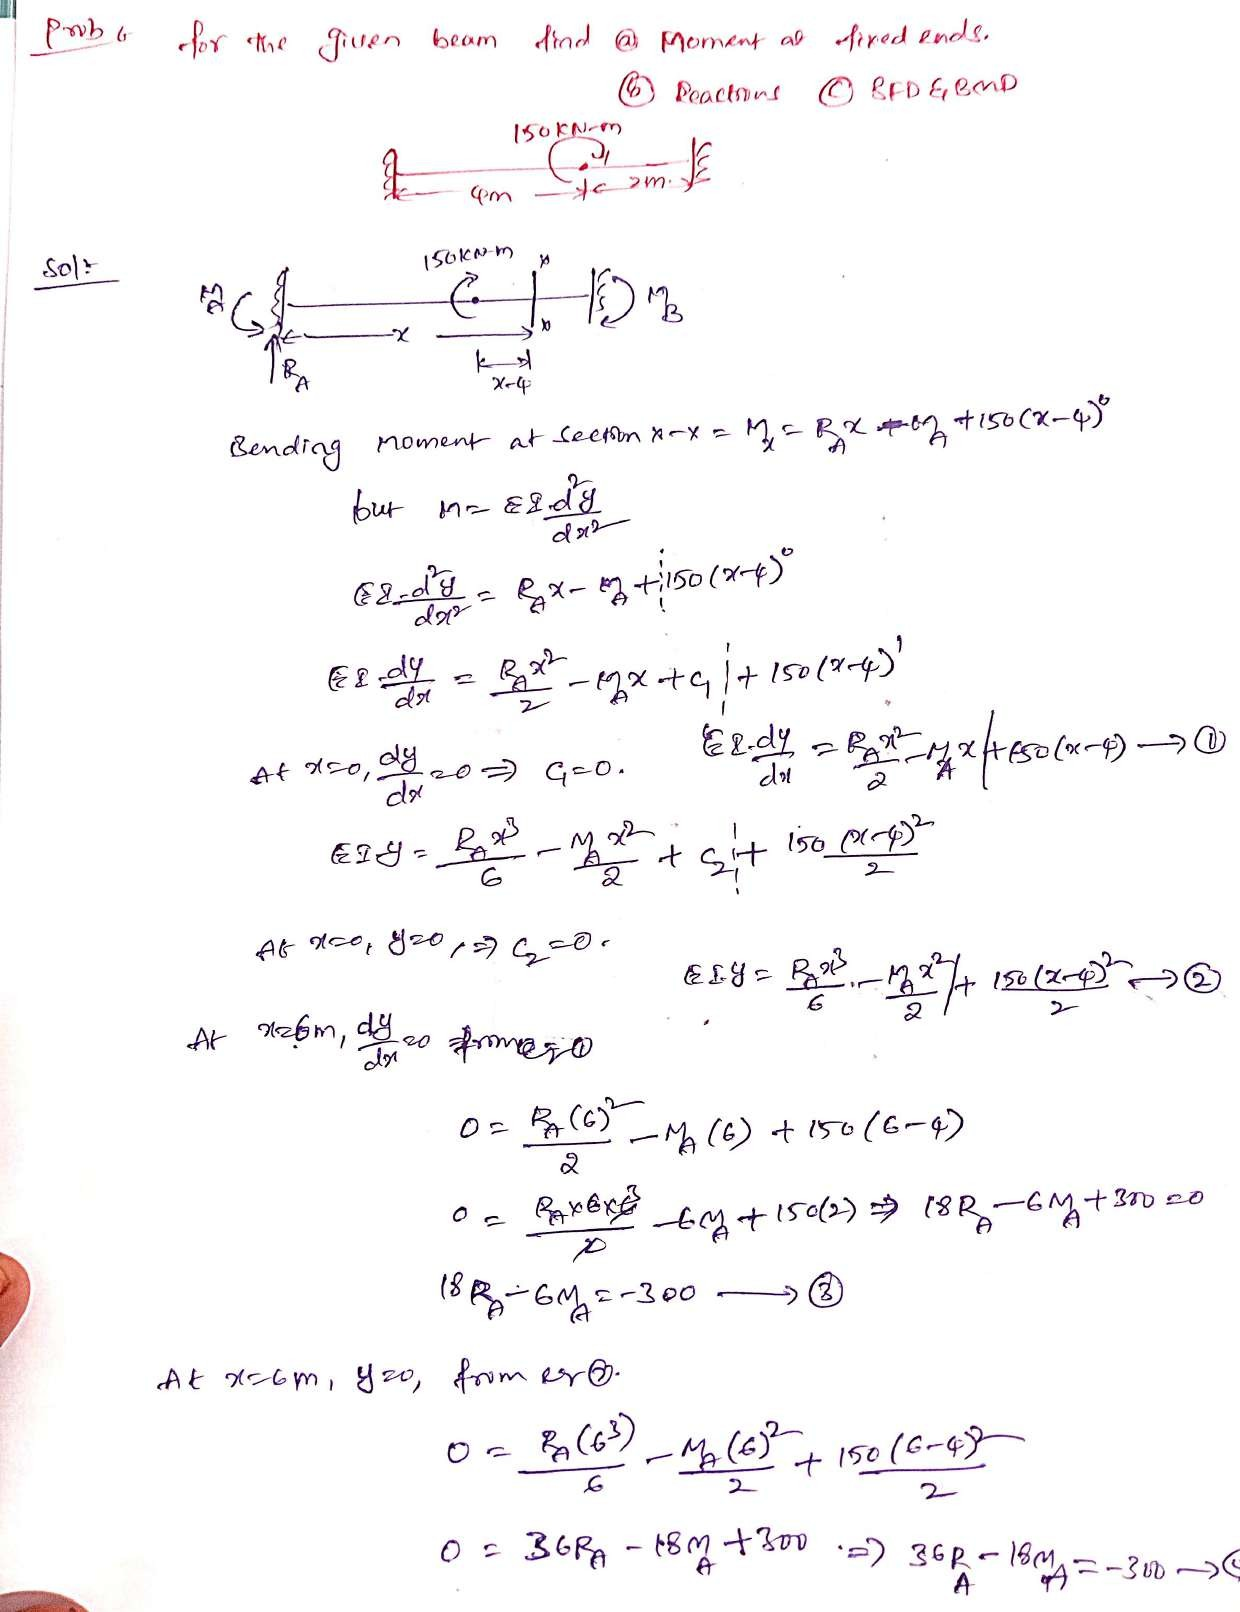 Prob 6 for the given beam find ⓐ Moment at fixed ends.
ⓑ Reactions ⓒ BFD & BMD
150KN-m
4m 2m.
Sol:-
150KN-m x
M_A M_B
x x
R_A x-4
Bending Moment at Section x-x = M_x = R_A x - M_A + 150(x-4)^0
but M = EI.d²y/dx²
EI.d²y/dx² = R_A x - M_A + 150(x-4)^0
EI.dy/dx = R_A x²/2 - M_A x + C₁ + 150(x-4)^1
At x=0, dy/dx=0 ⇒ C₁=0. EI.dy/dx = R_A x²/2 - M_A x + 150(x-4) → ①
EIy = R_A x³/6 - M_A x²/2 + C₂ + 150(x-4)²/2
At x=0, y=0, ⇒ C₂=0.
EI.y = R_A x³/6 - M_A x²/2 + 150(x-4)²/2 → ②
At x=6m, dy/dx=0 from eq ①
0 = R_A(6)²/2 - M_A(6) + 150(6-4)
0 = R_A×6×6/2 3 - 6M_A + 150(2) ⇒ 18R_A - 6M_A + 300 = 0
18R_A - 6M_A = -300 → ③
At x=6m, y=0, from eq ②.
0 = R_A(6³)/6 - M_A(6)²/2 + 150(6-4)²/2
0 = 36R_A - 18M_A + 300 ⇒ 36R_A - 18M_A = -300 →